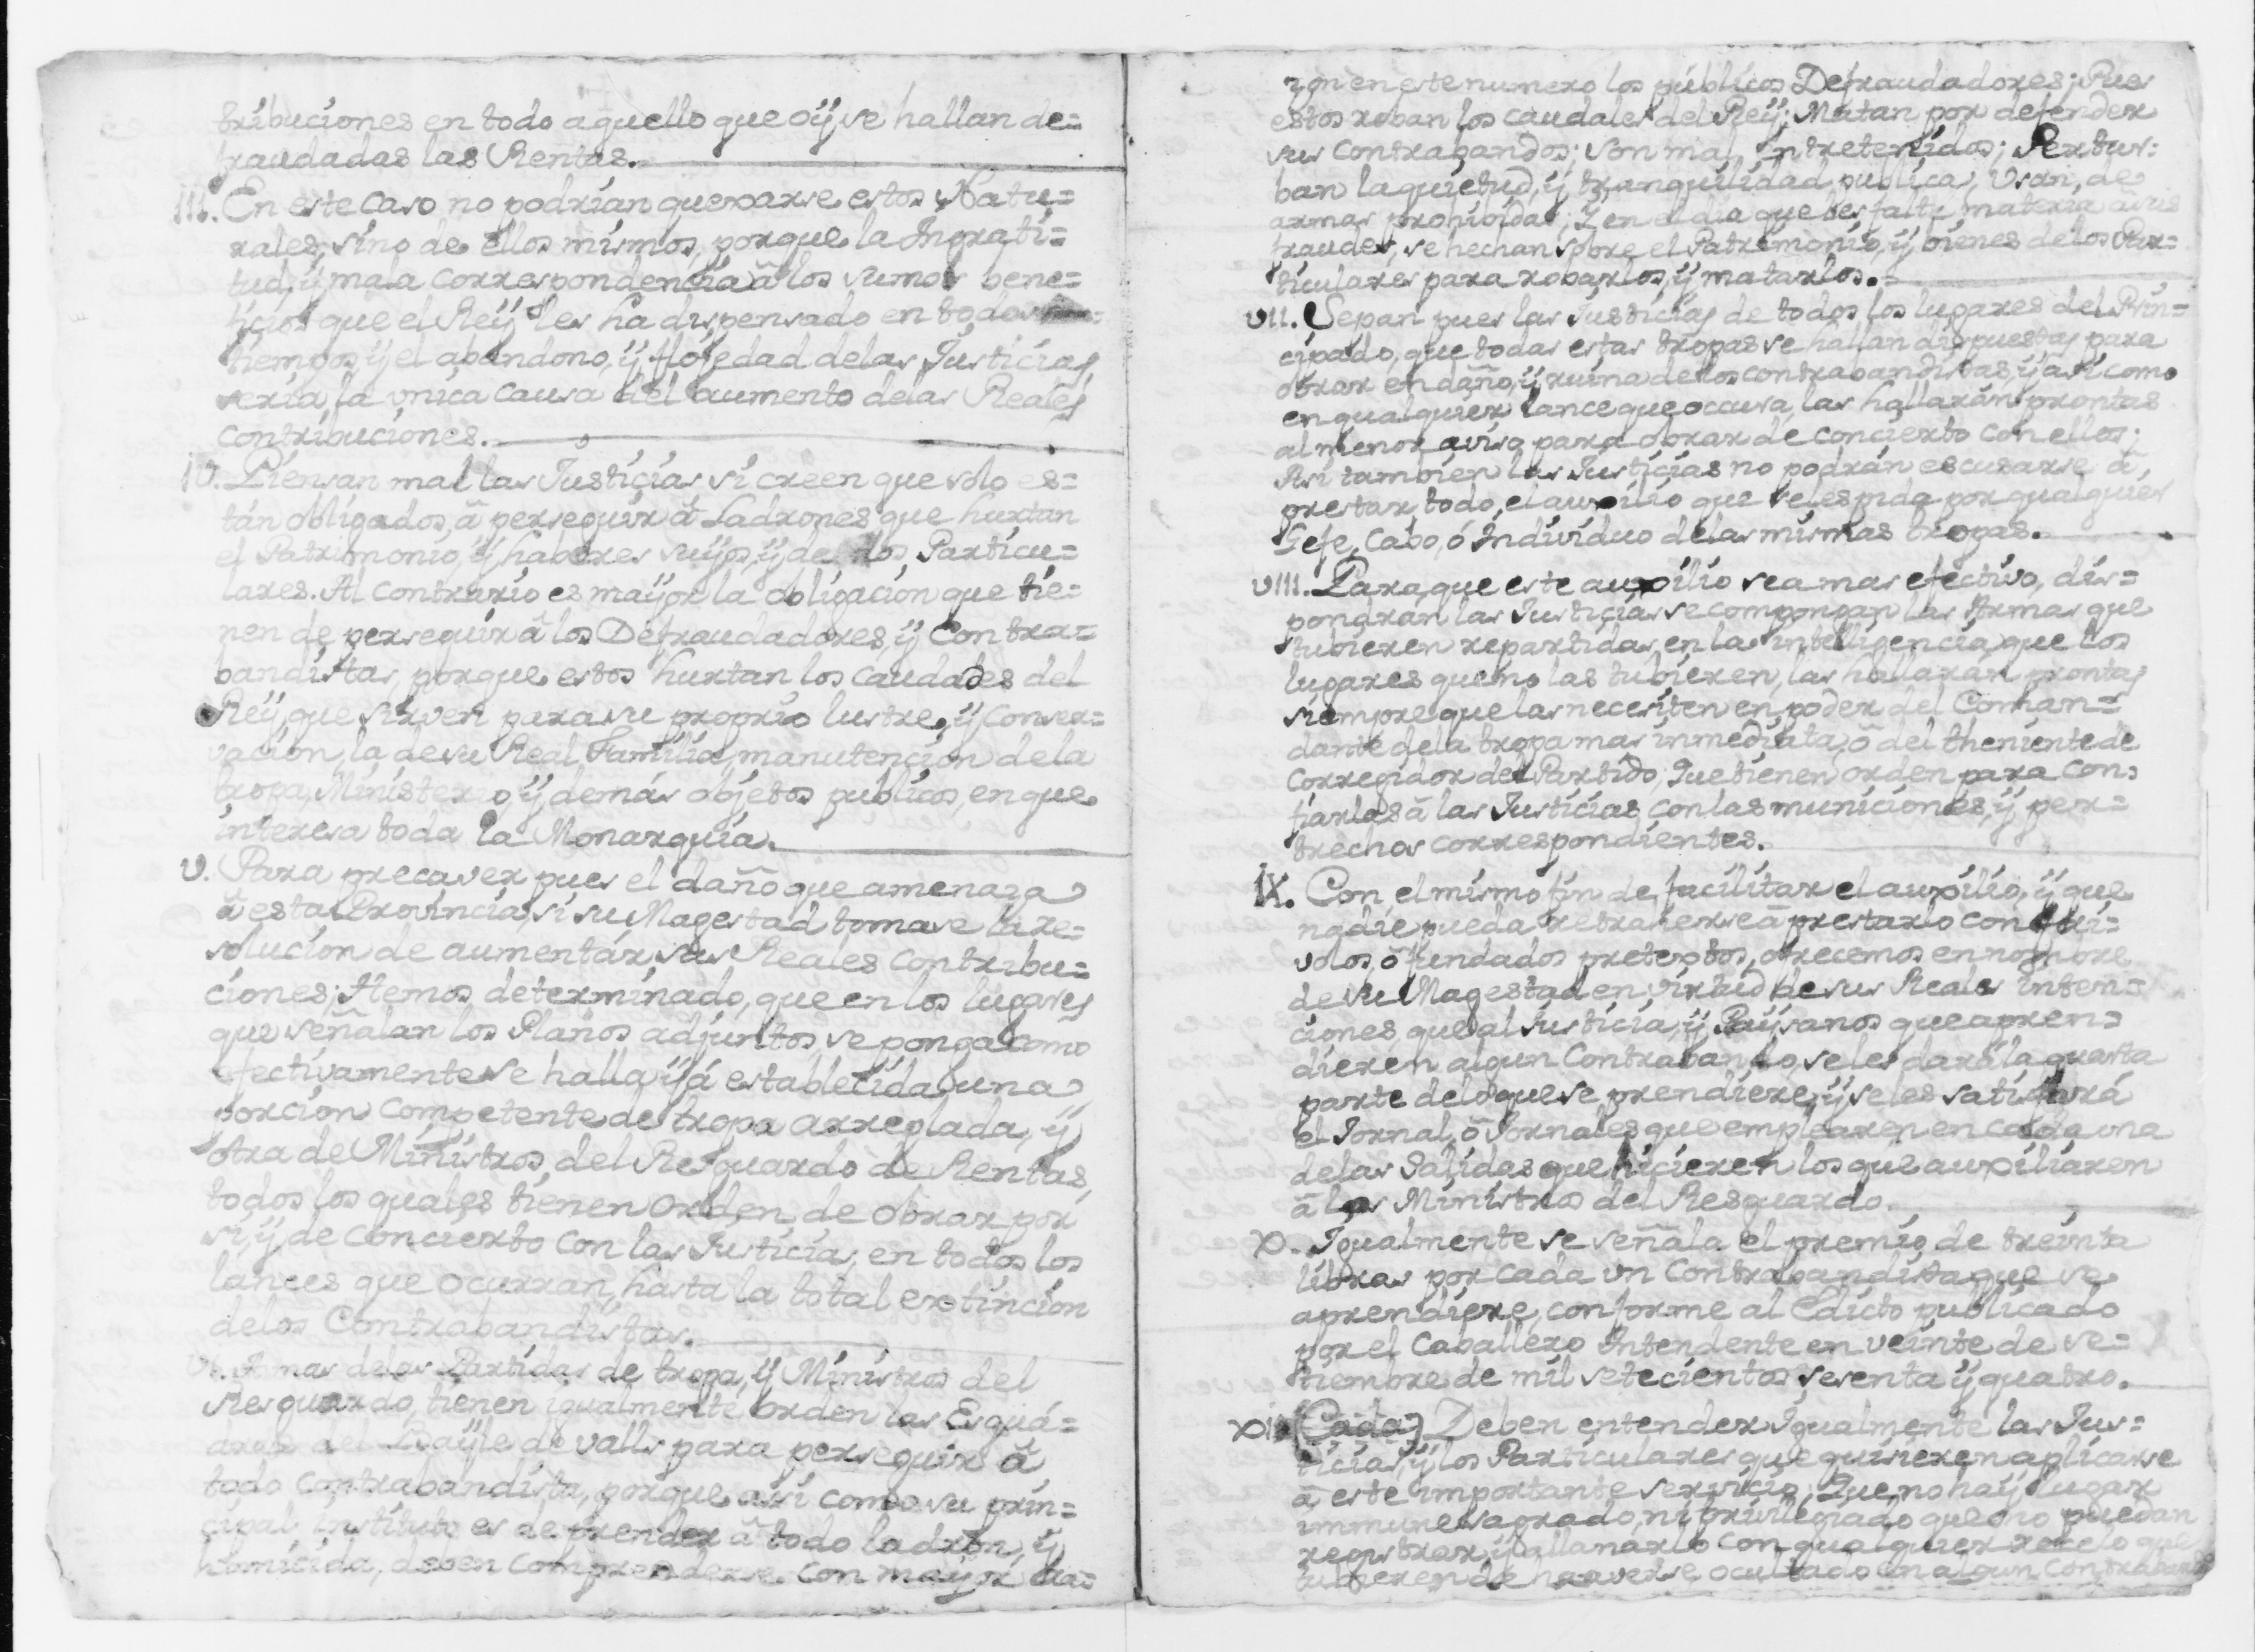 tribuciones en todo aquello que oÿ se hallan de=
fraudadas las Rentas.
III. En este caso no podrían quexarse estos Natu=
rales, sino de ellos mismos, porque la Ingrati=
tud, ÿ mala correspondencia â los sumos bene=
ficios que el Reÿ les ha dispensado en todos
tiempos, ÿ el abandono, ÿ flojedad delas Justicias
sería la vnica causa del aumento delas Reales
contribuciones.
IV. Piensan mal las Justicias si creen que solo es=
tán obligados, â perseguir â Ladrones que hurtan
el Patrimonio, ÿ haberes suÿos, ÿ de los Particu=
lares. Al contrario es maÿor la obligacion que tie=
nen de perseguir â los Defraudadores, ÿ Contra=
bandistas, porque estos hurtan los caudales del
Reÿ, que sirven para su proprio lustre, ÿ conser=
vacion, la de su Real Familia, manutencion dela
tropa, Ministerio ÿ demás objetos publicos, en que
interesa toda la Monarquía.
V. Para precaver pues el daño que amenaza
â esta Provincia, si su Magestad tomase la re=
solucion de aumentár sus Reales Contribu=
ciones; Hemos determinado, que en los lugares
que señalan los Planos adjuntos se ponga como
efectivamente se halla ÿá establecida una
porcion competente de tropa arreglada, ÿ
otra de Ministros del Resguardo de Rentas,
todos los quales tienen orden de obrar por
si, ÿ de concierto con las Justicias, en todos los
lances que ocurran, hasta la total extincion
delos Contrabandistas.
VI. A mas delas Partidas de tropa, ÿ Ministros del
Resguardo, tienen igualmente orden las Esquá=
dras del Baÿle de valls para perseguir â
todo Contrabandista, porque assi como su prin=
cipal instituto es de prender â todo ladron, ÿ
homicida, deben comprenderse con maÿor ra=
zon en este numero los públicos Defraudadores; Pues
estos roban los caudales del Reÿ; Matan por defender
sus contrabandos; son mal entretenidos; Pertur=
ban la quietud, ÿ tranquilidad publica, Usan, de
armas prohividas; Y en el día que les falte materia a sus
fraudes, se hechan sobre el Patrimonio, ÿ bienes delos Par=
ticulares para robarlos, ÿ matarlos.
VII. Sepan pues las Justicias de todos los lugares del Prin=
cipado, que todas estas tropas se hallan dispuestas para
obrar en daño, ÿ ruina delos contrabandistas, ÿ asi como
en qualquier lance que occura, las hallarán prontas
al menor aviso para obrar de concierto con ellos;
Asi tambien las Justicias no podrán escusarse â,
prestar, todo, el auxilio que se les pida por qualquier
Gefe, Cabo, ó Individuo delas mismas tropas.
VIII. Para que este auxilio sea mas efectivo, dis=
pondrán las Justicias se compongan las Armas que
tubieren repartidas, en la intelligencia, que los
lugares que no las tubieren, las hallarán prontas
siempre que las necesiten en poder del Coman=
dante dela tropa mas inmediata, ô del theniente de
Corregidor del Partido, Que tienen orden para con=
fiarlas â las Justicias, con las municiones, ÿ per=
trechos correspondientes.
IX. Con el mismo fin de facilitar el auxilio, ÿ que
nadie pueda retraherse â prestarlo con fri=
volos, ô fundados pretextos, ofrecemos en nombre
de su Magestad en virtud de sus Reales inten=
ciones, que al Justicia, ÿ Paÿsanos que apren=
dieren algun Contrabando, se les dará la quarta
parte delo que se prendiere, ÿ se les satisfará
el Jornal, ô Jornales que emplearen en cada una
delas Salidas que hicieren los que auxiliaren
â los Ministros del Resguardo.
X. Igualmente se señala el premio de treinta
libras por cada un Contrabandista que se
aprendiere, conforme al Edicto publicado
por el Caballero Intendente en veinte de se=
tiembre de mil setecientos sesenta ÿ quatro.
XI. (Cada) Deben entender Igualmente las Jus=
ticias, ÿ los Particulares que quisieren aplicarse
â este importante servicio; Que no haÿ lugar
immune sagrado, ni privilegiado que no puedan
registrar, ÿ allanarlo con qualquier rezelo que
tubieren de haverse ocultado en algun Contraban